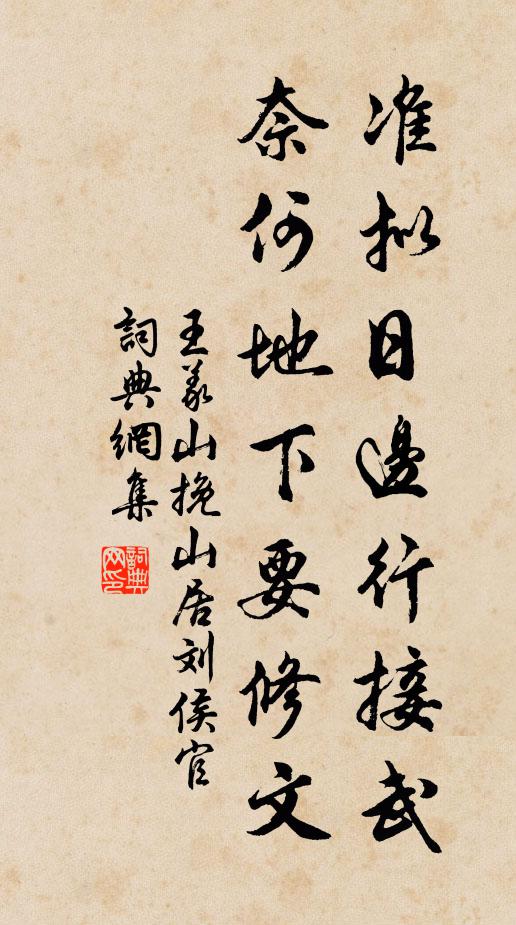 准拟日邊行接武
奈何地下要修文
王义山挽山居刘侯官
詞典網集
詞典网印